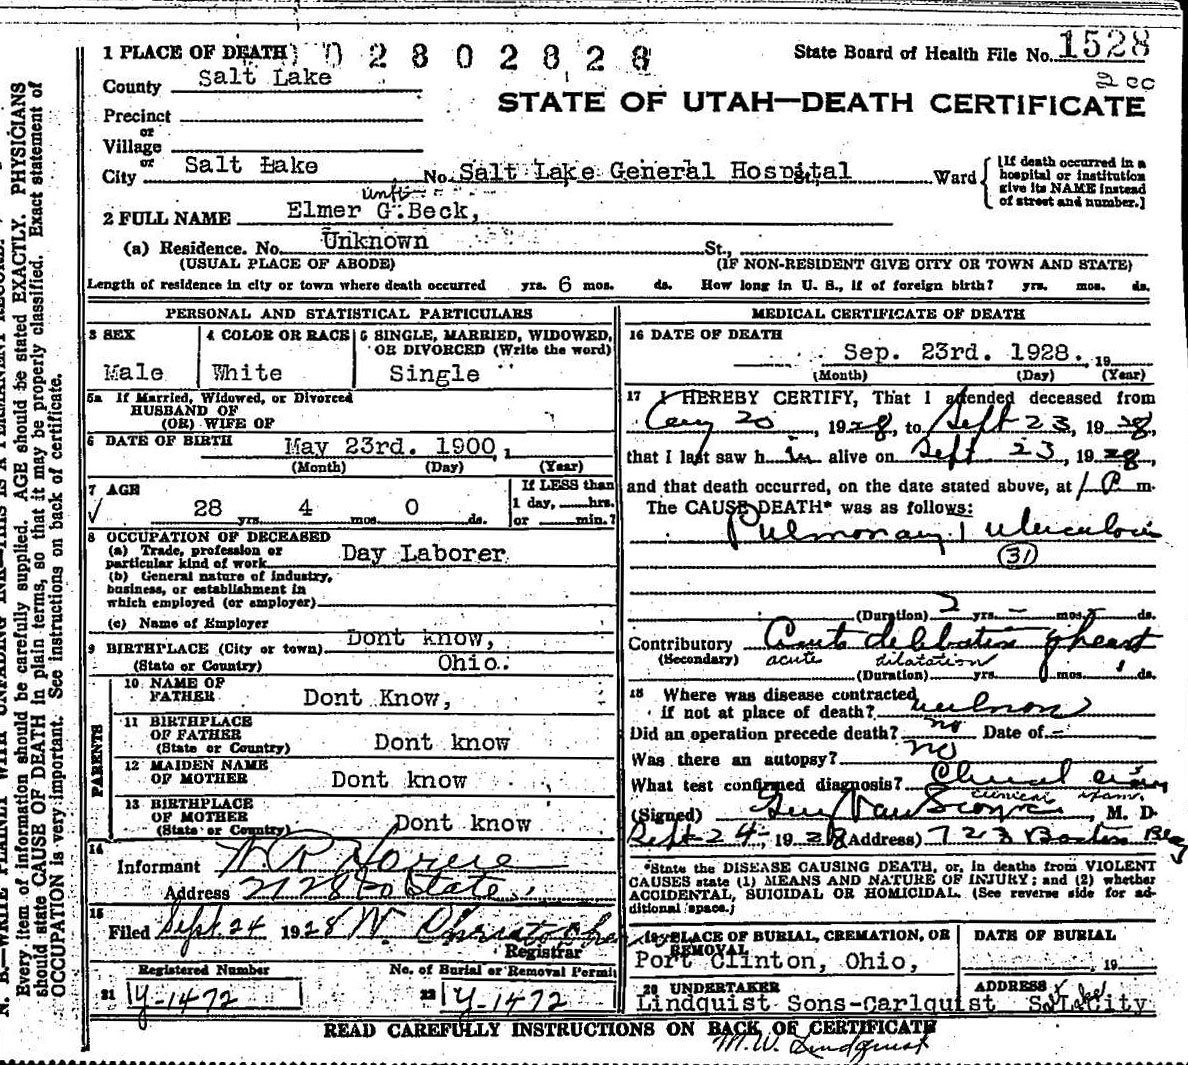 1 PLACE OF DEATH 02802828 State Board of Health File No. 1528
County Salt Lake 200
STATE OF UTAH—DEATH CERTIFICATE
Precinct
or
Village
or
City Salt Lake No. Salt Lake General Hospital Ward
[If death occurred in a
hospital or institution
give its NAME instead
of street and number.]
2 FULL NAME Elmer G. Beck,
(a) Residence. No. Unknown St.,
(USUAL PLACE OF ABODE) (IF NON-RESIDENT GIVE CITY OR TOWN AND STATE)
Length of residence in city or town where death occurred yrs. 6 mos. ds. How long in U. S., if of foreign birth? yrs. mos. ds.
PERSONAL AND STATISTICAL PARTICULARS
3 SEX
Male
4 COLOR OR RACE
White
5 SINGLE, MARRIED, WIDOWED,
OR DIVORCED (Write the word)
Single
5a If Married, Widowed, or Divorced
HUSBAND OF
(OR) WIFE OF
6 DATE OF BIRTH May 23rd. 1900,
(Month) (Day) (Year)
7 AGE
28 yrs. 4 mos. 0 ds.
If LESS than
1 day, hrs.
or min.?
8 OCCUPATION OF DECEASED
(a) Trade, profession or
particular kind of work Day Laborer
(b) General nature of industry,
business, or establishment in
which employed (or employer)
(c) Name of Employer
9 BIRTHPLACE (City or town) Dont know,
(State or Country) Ohio.
PARENTS
10 NAME OF
FATHER Dont Know,
11 BIRTHPLACE
OF FATHER
(State or Country) Dont know
12 MAIDEN NAME
OF MOTHER Dont know
13 BIRTHPLACE
OF MOTHER
(State or Country) Dont know
14
Informant
Address 2128 So State
15
Filed Sept. 24 1928
Registrar
Registered Number
21 Y-1472
No. of Burial or Removal Permit
22 Y-1472
MEDICAL CERTIFICATE OF DEATH
16 DATE OF DEATH
Sep. 23rd. 1928. 19
(Month) (Day) (Year)
17 I HEREBY CERTIFY, That I attended deceased from
20, 1928, to Sept 23, 1928,
that I last saw h im alive on Sept 23, 1928,
and that death occurred, on the date stated above, at 1 P. m.
The CAUSE DEATH* was as follows:
Pulmonary Tuberculosis
(31)
(Duration) 2 yrs. – mos. ds.
Contributory Acute dilatation of heart
(Secondary) acute dilatation
(Duration) yrs. mos. ds.
18 Where was disease contracted
if not at place of death? unknown
Did an operation precede death? no Date of –
Was there an autopsy? no
What test confirmed diagnosis? Clinical exam
clinical exam.
(Signed) M. D.
Sept 24–, 1928 (Address) 723 Boston Bldg
*State the DISEASE CAUSING DEATH, or, in deaths from VIOLENT
CAUSES state (1) MEANS AND NATURE OF INJURY; and (2) whether
ACCIDENTAL, SUICIDAL OR HOMICIDAL. (See reverse side for ad-
ditional space.)
19 PLACE OF BURIAL, CREMATION, OR
REMOVAL
Port Clinton, Ohio,
DATE OF BURIAL
, 19
20 UNDERTAKER
Lindquist Sons-Carlquist
ADDRESS
S Lake City
READ CAREFULLY INSTRUCTIONS ON BACK OF CERTIFICATE
M. W. Lindquist
N. B.—WRITE PLAINLY WITH UNFADING INK—THIS IS A PERMANENT RECORD.
Every item of information should be carefully supplied. AGE should be stated EXACTLY. PHYSICIANS
should state CAUSE OF DEATH in plain terms, so that it may be properly classified. Exact statement of
OCCUPATION is very important. See instructions on back of certificate.